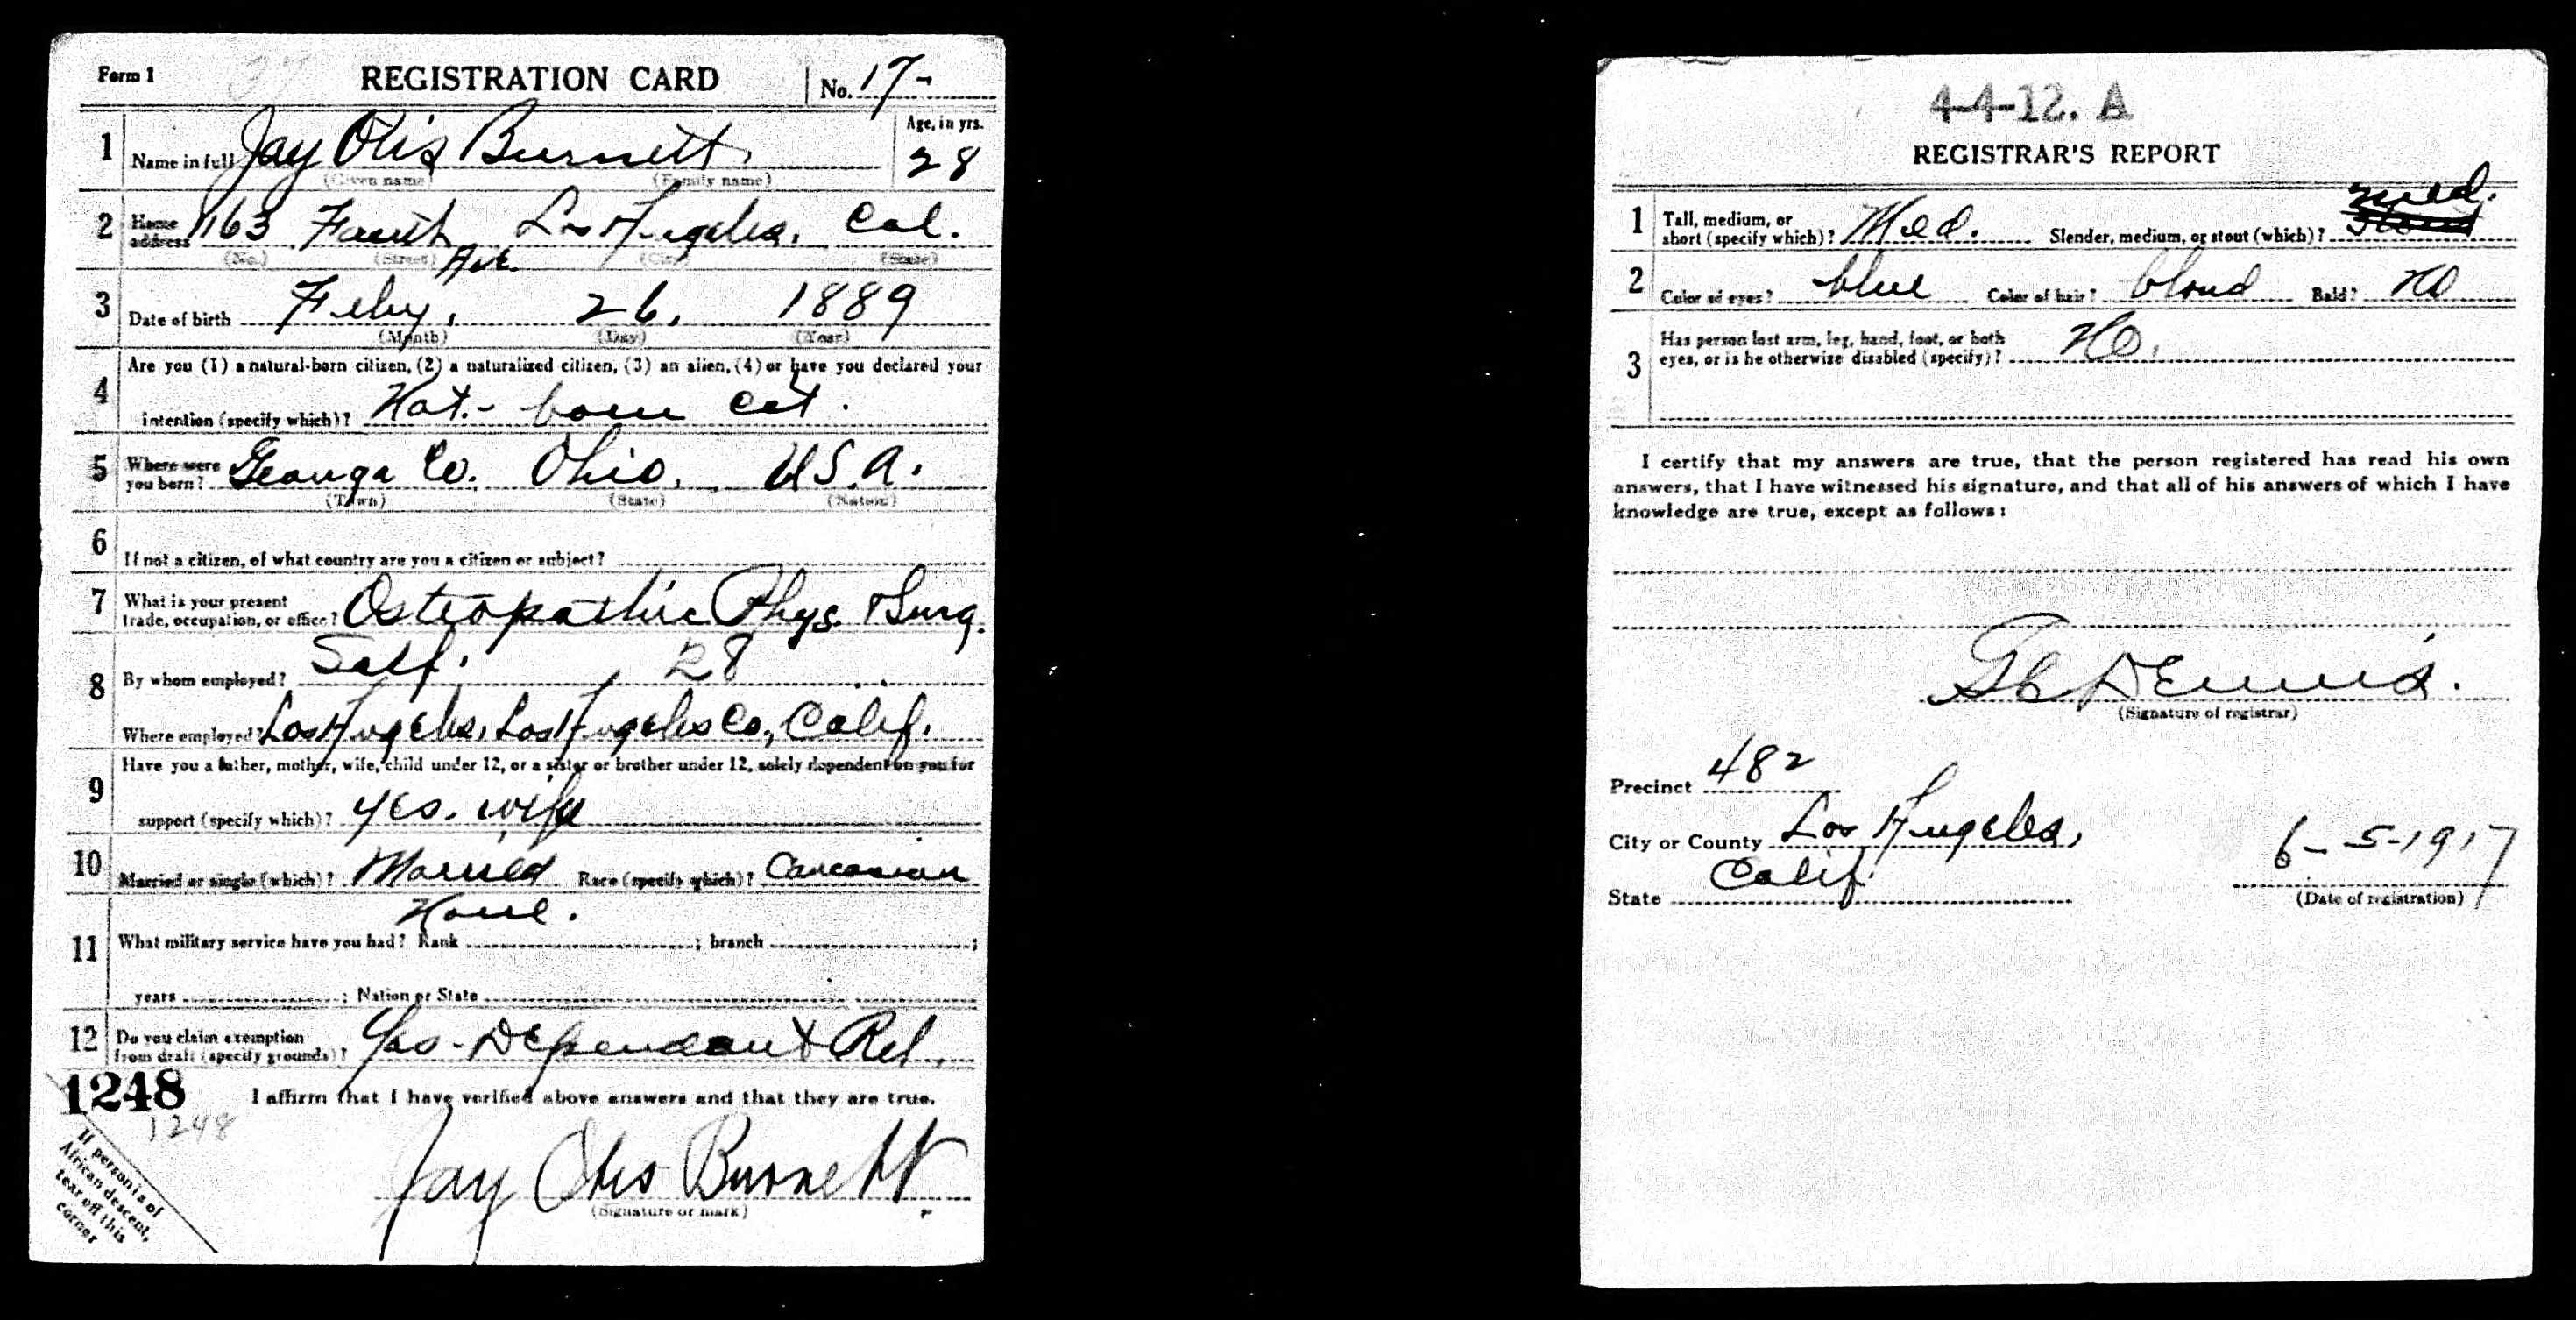 Form 1 37 REGISTRATION CARD No. 17-
1 Name in full Jay Otis Burnett. Age, in yrs. 28
(Given name) (Family name)
2 Home address 1163 Fourth Ave. Los Angeles, Cal.
(No.) (Street) (City) (State)
3 Date of birth Feby, 26, 1889
(Month) (Day) (Year)
4 Are you (1) a natural-born citizen, (2) a naturalized citizen, (3) an alien, (4) or have you declared your
intention (specify which)? Nat.- born cit.
5 Where were you born? Geauga Co. Ohio, U.S.A.
(Town) (State) (Nation)
6 If not a citizen, of what country are you a citizen or subject?
7 What is your present trade, occupation, or office? Osteopathic Phys. & Surg.
8 By whom employed? Self. 28
Where employed? Los Angeles, Los Angeles Co., Calif.
9 Have you a father, mother, wife, child under 12, or a sister or brother under 12, solely dependent on you for
support (specify which)? yes. wife
10 Married or single (which)? Married Race (specify which)? Caucasian
None.
11 What military service have you had? Rank ; branch ;
years ; Nation or State
12 Do you claim exemption from draft (specify grounds)? Yes - Dependant Rel.
1248 I affirm that I have verified above answers and that they are true.
1248
Jay Otis Burnett
(Signature or mark)
If person is of
African descent,
tear off this
corner
4-4-12. A
REGISTRAR'S REPORT
1 Tall, medium, or short (specify which)? Med. Slender, medium, or stout (which)? Stout med.
2 Color of eyes? blue Color of hair? blond Bald? No
3 Has person lost arm, leg, hand, foot, or both
eyes, or is he otherwise disabled (specify)? No.
I certify that my answers are true, that the person registered has read his own
answers, that I have witnessed his signature, and that all of his answers of which I have
knowledge are true, except as follows:
Dennis.
(Signature of registrar)
Precinct 482
City or County Los Angeles,
State Calif. 6-5-1917
(Date of registration)